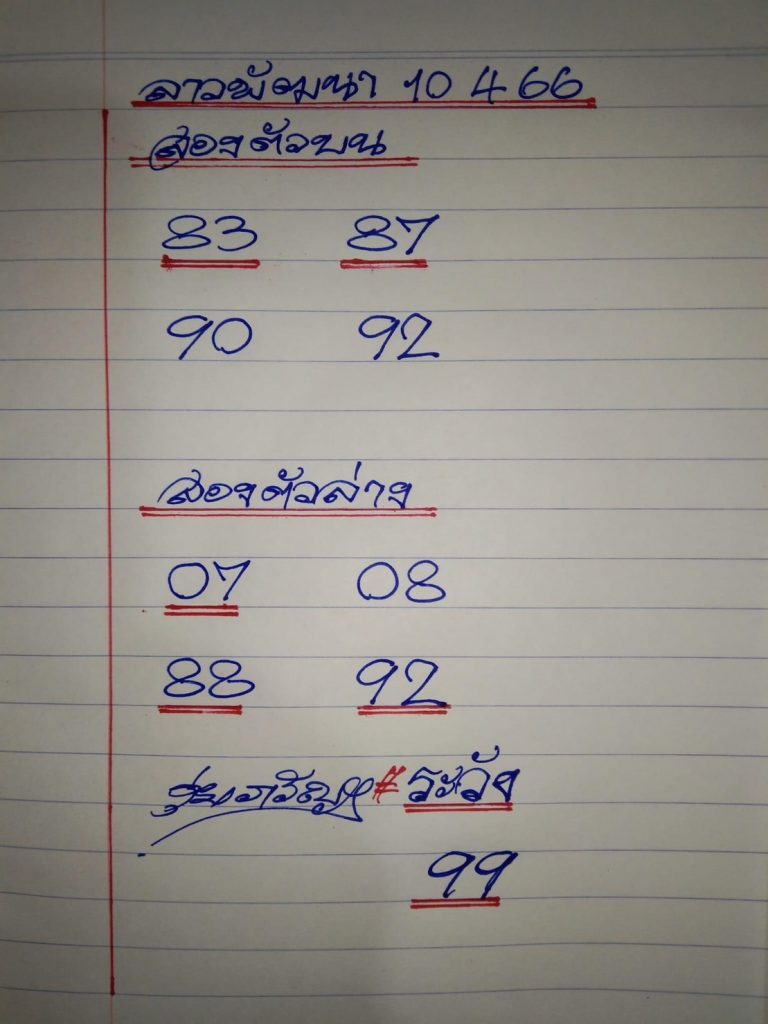 ลาวพัฒนา 10 4 66
สองตัวบน
83 87
90 92
สองตัวล่าง
07 08
88 92
#ระวัง
99